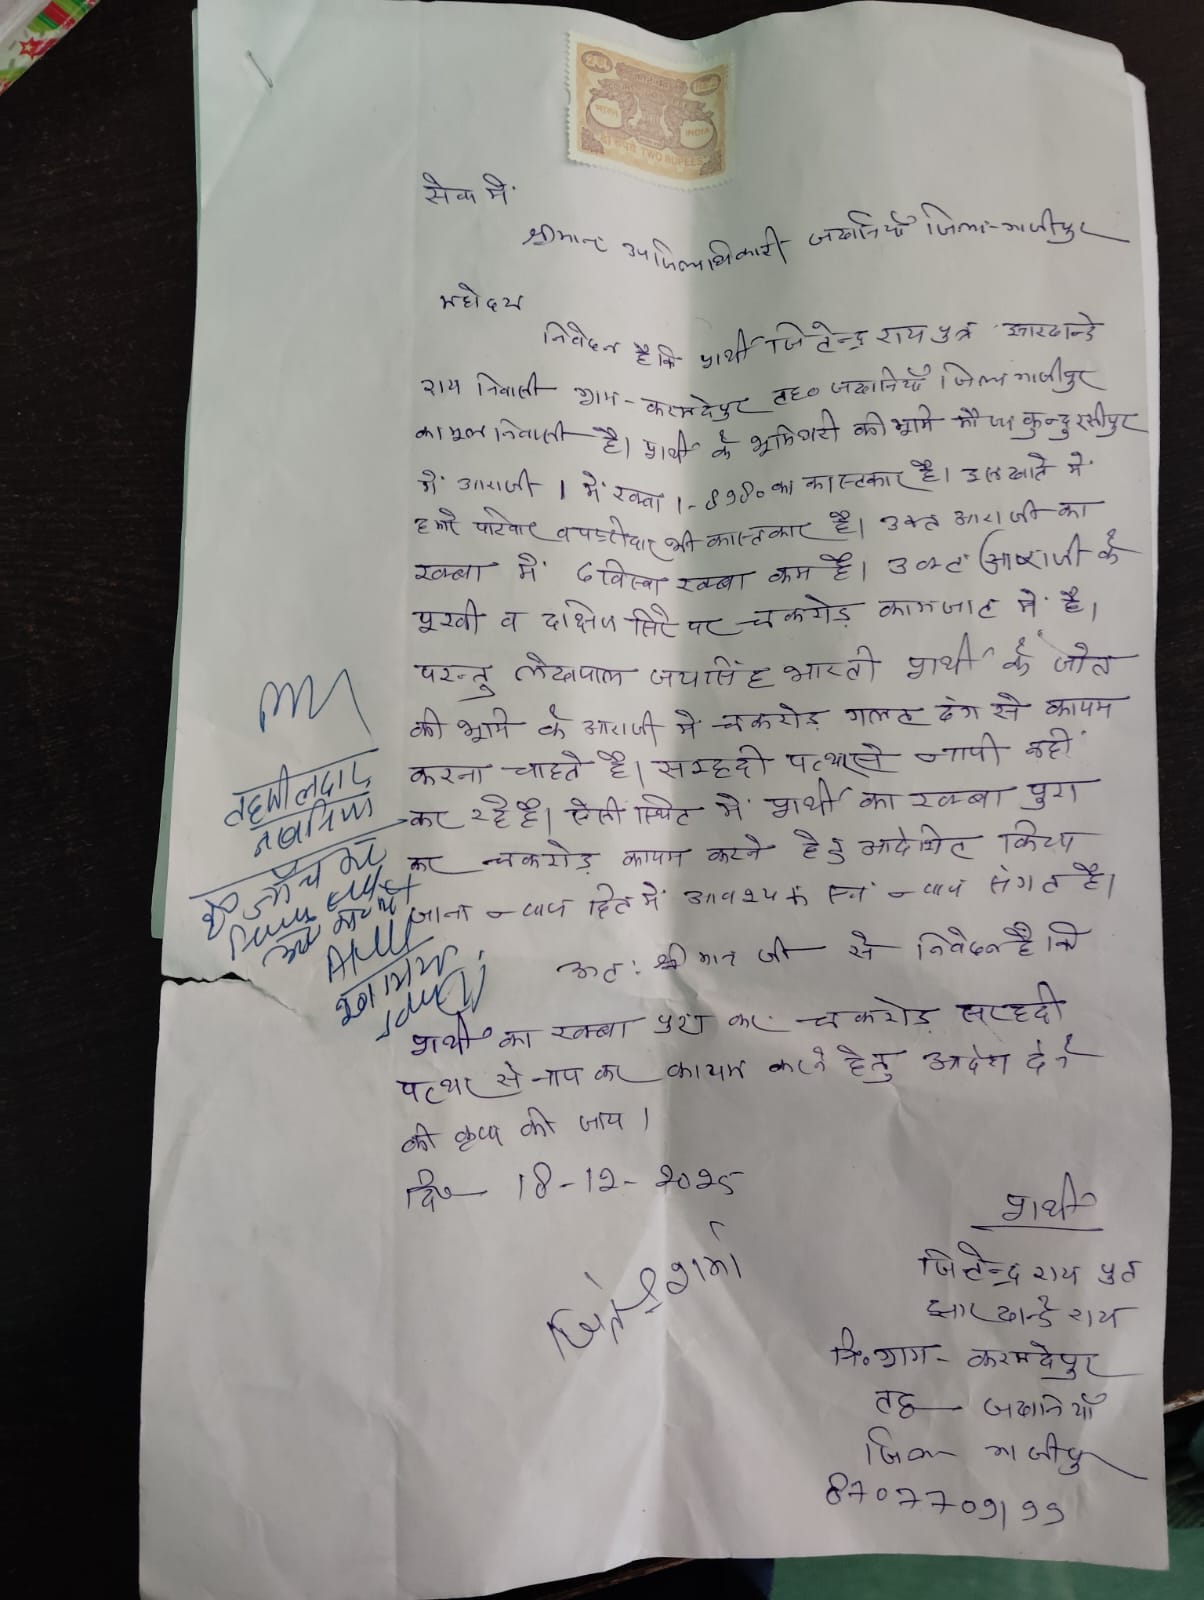 भारत
INDIA
दो रुपये TWO RUPEES
सेवा में
श्रीमान उपजिलाधिकारी जखनियाँ जिला-गाजीपुर
महोदय
निवेदन है कि प्रार्थी जितेन्द्र राय पुत्र झारखान्डे
राय निवासी ग्राम-करमदेपुर तह० जखनियाँ जिला गाजीपुर
का मूल निवासी है। प्रार्थी के भूमिधरी की भूमि मौजा कुन्दुरसीपुर
में आराजी 1 में रकबा का कास्तकार है। इस खाते में
हमारे परिवार व पट्टीदार भी कास्तकार है। उक्त आराजी का
रकबा में 6 विस्वा रकबा कम है। उक्त आराजी के
पूरबी व दक्षिण सिरे पर चकरोड़ कागजात में है।
परन्तु लेखपाल जयसिंह भारती प्रार्थी के जोत
की भूमि के आराजी में चकरोड़ गलत ढंग से कायम
करना चाहते है। सरहदी पत्थर से नापी नहीं
कर रहे है। ऐसी स्थित में प्रार्थी का रकबा पुरा
कर चकरोड़ कायम करने हेतु आदेशित किया
जाना न्याय हित में आवश्यक एवं न्याय संगत है।
अतः श्रीमान जी से निवेदन है कि
प्रार्थी का रकबा पुरा कर चकरोड़ सरहदी
पत्थर से नाप कर कायम करने हेतु आदेश देने
की कृपा की जाय।
दि० 18-12-2025
तहसीलदार
जखनियां
जाँच कर
जितेन्द्र शर्मा
प्रार्थी
जितेन्द्र राय पुत्र
झारखान्डे राय
नि० ग्राम- करमदेपुर
तह० जखनियाँ
जिला गाजीपुर